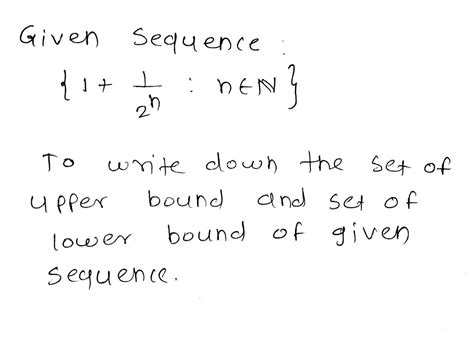 Given Sequence :
{ 1 + 1/2^n : n ∈ ℕ }
To write down the set of
upper bound and set of
lower bound of given
sequence.